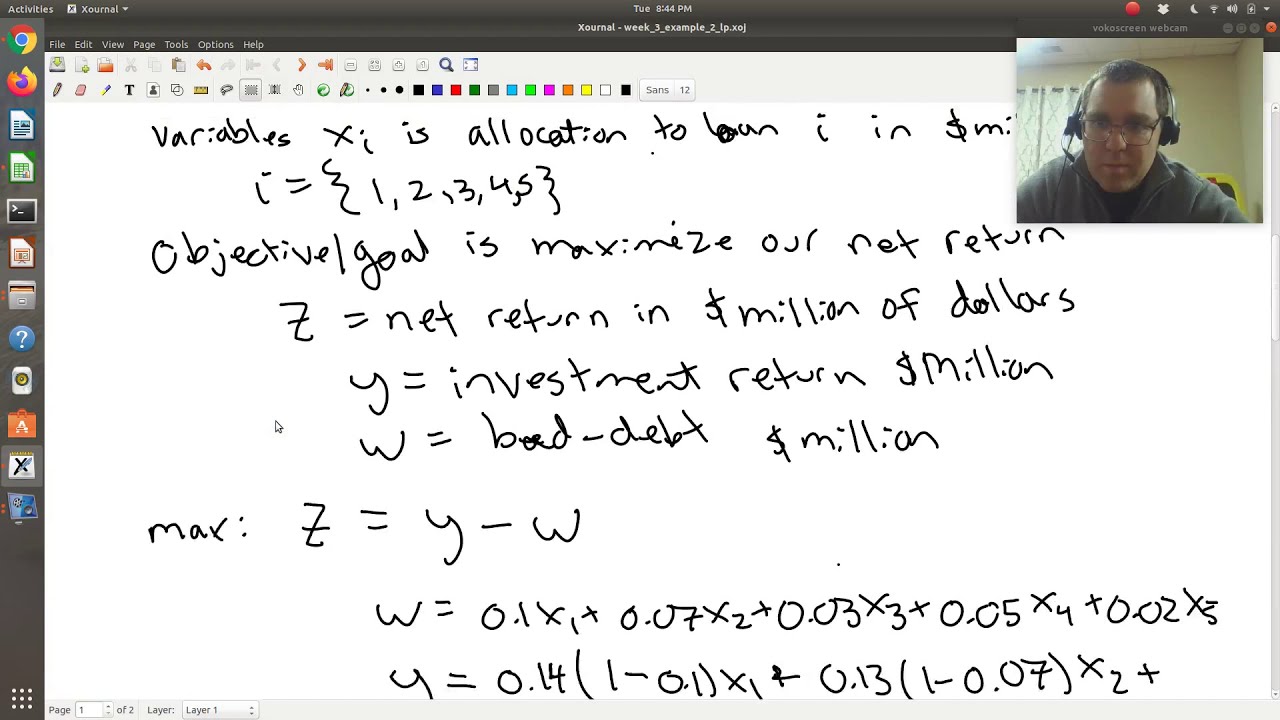 Activities Xournal Tue 8:44 PM
Xournal - week_3_example_2_lp.xoj
vokoscreen webcam
File Edit View Page Tools Options Help
Sans 12
variables xi is allocation to loan i in $mi
i = {1, 2, 3, 4, 5}
Objective/goal is maximize our net return
Z = net return in $million of dollars
y = investment return $Million
w = bad-debt $million
max: Z = y - w
w = 0.1x1 + 0.07x2 + 0.03x3 + 0.05x4 + 0.02x5
y = 0.14(1-0.1)x1 + 0.13(1-0.07)x2 +
Page 1 of 2 Layer: Layer 1